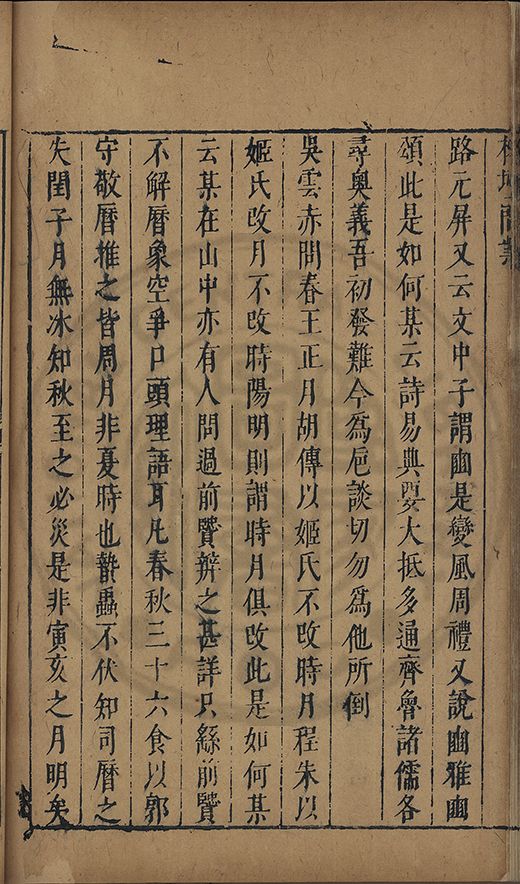 榕壇問業
路元屏又云文中子謂豳是變風周禮又說豳雅豳
頌此是如何某云詩易典要大抵多通齊魯諸儒各
尋奧義吾初發難今為巵談切勿為他所倒
吳雲赤問春王正月胡傳以姬氏不改時月程朱以
姬氏改月不改時陽明則謂時月俱改此是如何某
云某在山中亦有人問過前贒辨之甚詳只繇前贒
不解曆象空爭口頭理語耳凡春秋三十六食以郭
守敬曆推之皆周月非夏時也蟄蟲不伏知司曆之
失閏子月無冰知秋至之必災是非寅亥之月明矣